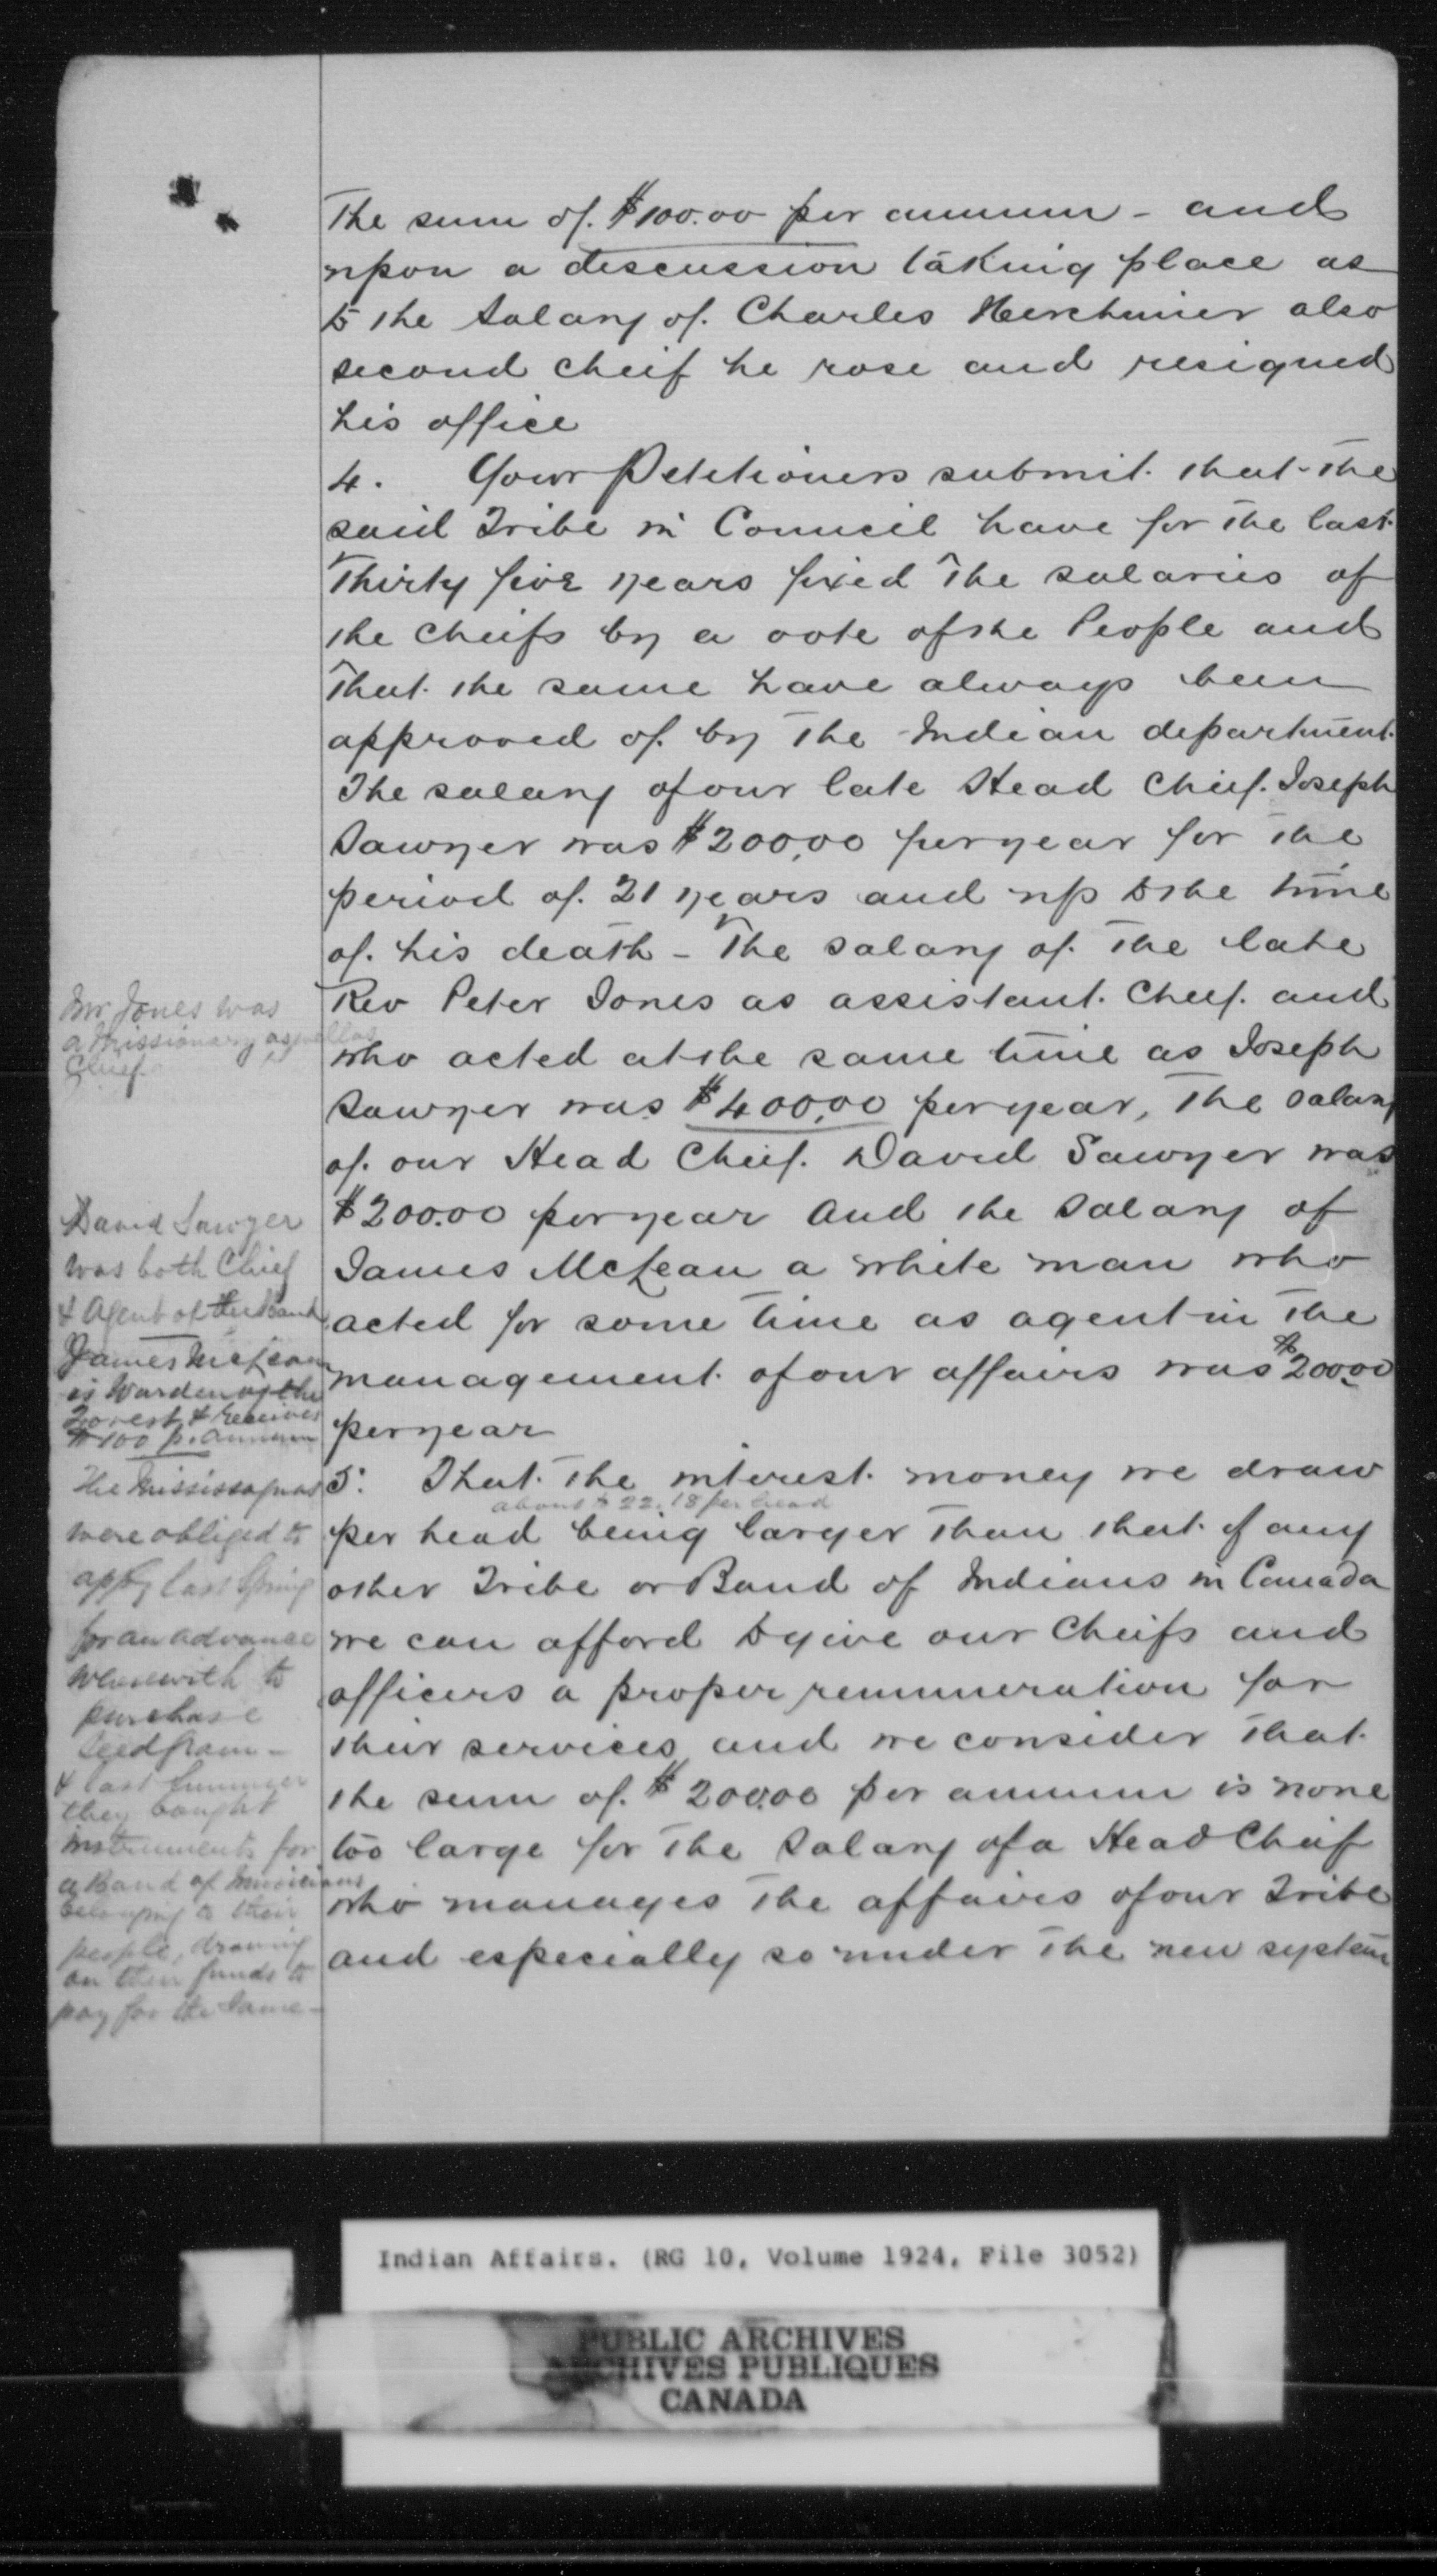 The sum of $100.00 per annum - and
upon a discussion taking place as
to the Salary of Charles Herchimer also
second cheif he rose and resigned
his office
4. Your Petitioners submit that the
said Tribe in Council have for the last
Thirty five years fixed the salaries of
the cheifs by a vote of the People and
that the same have always been
approved of by the Indian department.
The salary of our late Head Chief Joseph
Sawyer was $200.00 per year for the
period of 21 years and up to the time
of his death - The salary of the late
Mr Jones was
a Missionary as well as
Chief
Rev Peter Jones as assistant Cheif and
who acted at the same time as Joseph
Sawyer was $400.00 per year, The salary
of our Head Cheif David Sawyer was
David Sawyer
was both Chief
& Agent of the Band
$200.00 per year and the Salary of
James McLean a white man who
acted for some time as agent in the
James McLean
is Warden of the
Forest & receives
$100 p. annum
management of our affairs was $200.00
per year
The Mississaguas
were obliged to
apply last Spring
for an advance
wherewith to
purchase
seed grain -
& last Summer
they bought
instruments for
a Band of Musicians
belonging to their
people, drawing
on their funds to
pay for the same -
5. That the interest money we draw
about $22.18 per head
per head being larger than that of any
other Tribe or Band of Indians in Canada
we can afford to give our Cheifs and
officers a proper remuneration for
their services and we consider that
the sum of $200.00 per annum is none
too large for the Salary of a Head Cheif
who manages the affairs of our Tribe
and especially so under the new system
Indian Affairs. (RG 10, Volume 1924, File 3052)
PUBLIC ARCHIVES
ARCHIVES PUBLIQUES
CANADA